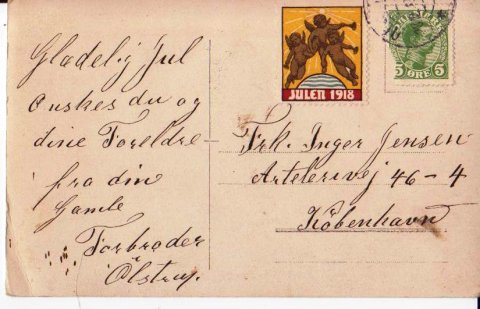 Gladelig Jul
Ønskes du og
dine Foreldre
fra din
Gamle
Farbroder
Ølstrup.
JULEN 1918
5 ØRE 5
Frk. Inger Jensen
Artilerivej 46-4
København